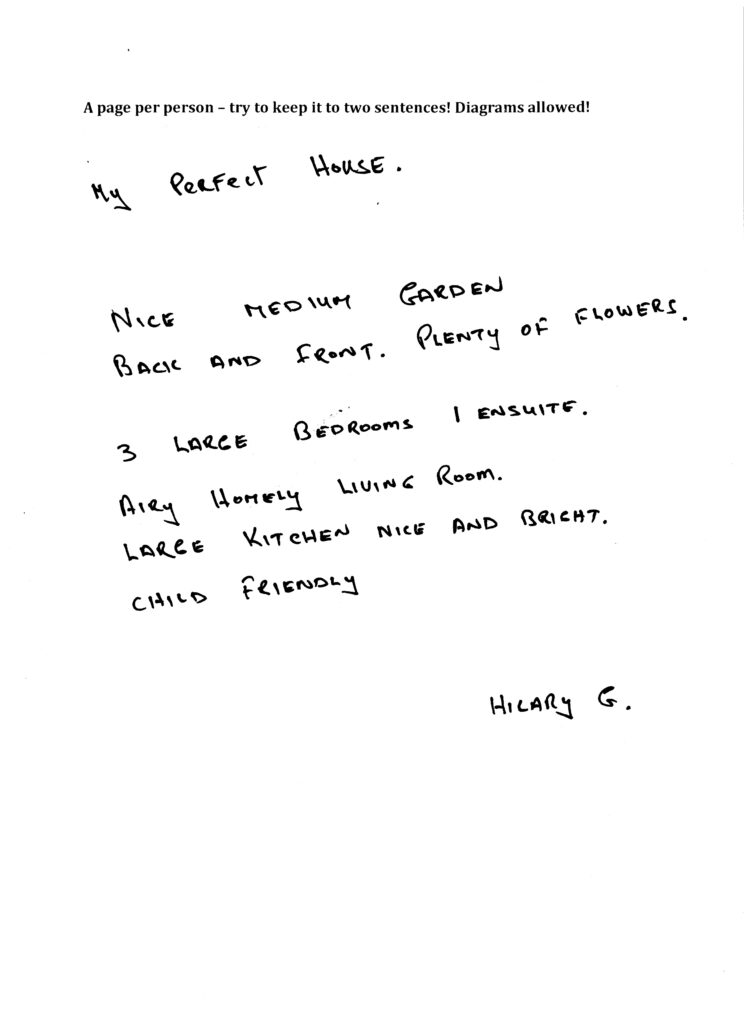 A page per person – try to keep it to two sentences! Diagrams allowed!
My Perfect House.
Nice medium Garden
Back and Front. Plenty of flowers.
3 Large Bedrooms 1 ensuite.
Airy Homely Living Room.
Large Kitchen nice and Bright.
Child Friendly
Hilary G.